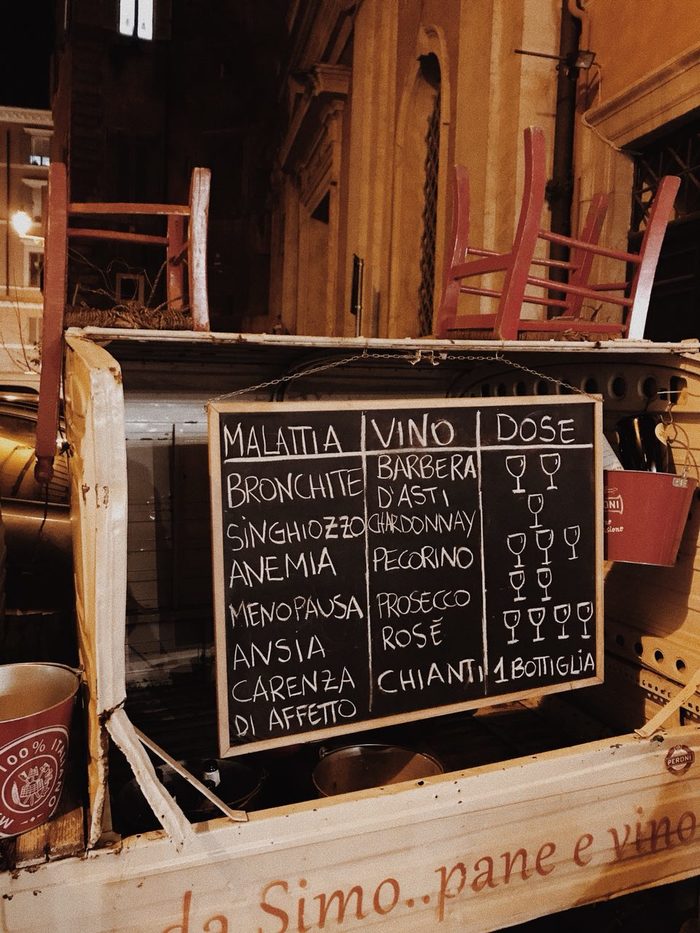 MALATTIA VINO DOSE
BRONCHITE BARBERA D'ASTI
SINGHIOZZO CHARDONNAY
ANEMIA PECORINO
MENOPAUSA PROSECCO
ANSIA ROSÉ
CARENZA DI AFFETTO CHIANTI 1 BOTTIGLIA
100% ITALIANO
PERONI
da Simo..pane e vino